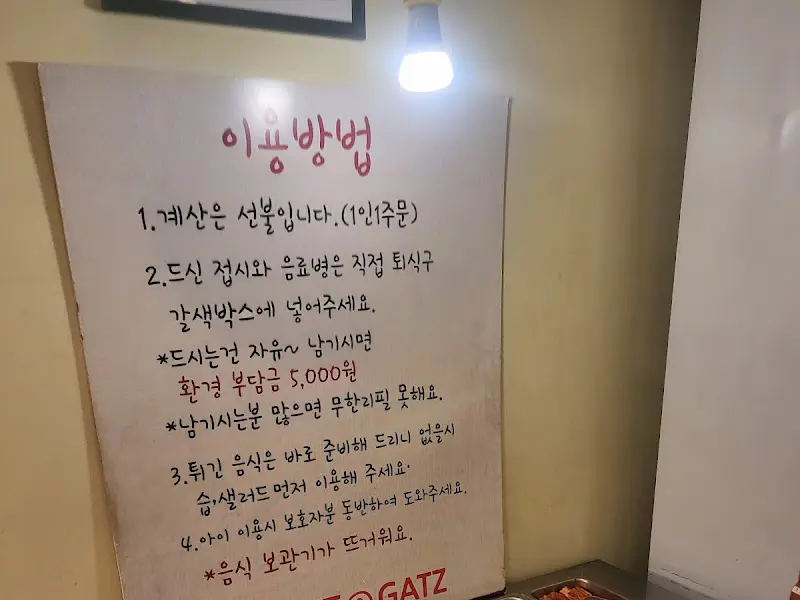 이용방법
1.계산은 선불입니다.(1인1주문)
2.드신 접시와 음료병은 직접 퇴식구
갈색박스에 넣어주세요.
*드시는건 자유~ 남기시면
환경 부담금 5,000원
*남기시는분 많으면 무한리필 못해요.
3.튀긴 음식은 바로 준비해 드리니 없을시
습,샐러드먼저 이용해 주세요.
4.아이 이용시 보호자분 동반하여 도와주세요.
*음식 보관기가 뜨거워요.
GATZ